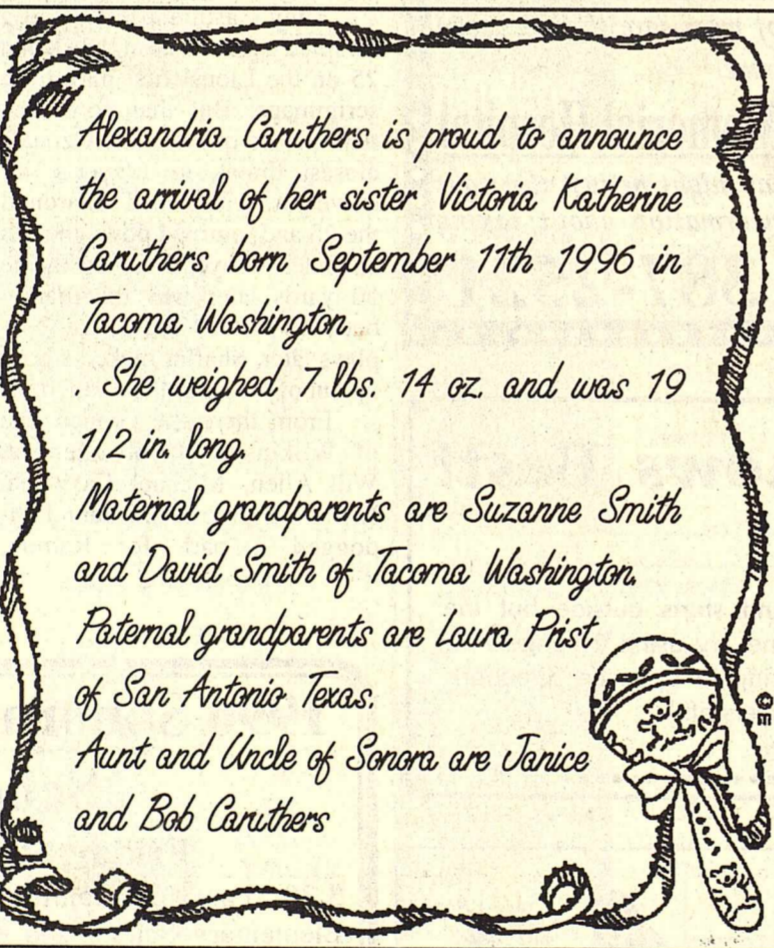 Alexandria Caruthers is proud to announce
the arrival of her sister Victoria Katherine
Caruthers born September 11th 1996 in
Tacoma Washington
. She weighed 7 lbs. 14 oz. and was 19
1/2 in. long.
Maternal grandparents are Suzanne Smith
and David Smith of Tacoma Washington.
Paternal grandparents are Laura Prist
of San Antonio Texas.
Aunt and Uncle of Sonora are Janice
and Bob Caruthers